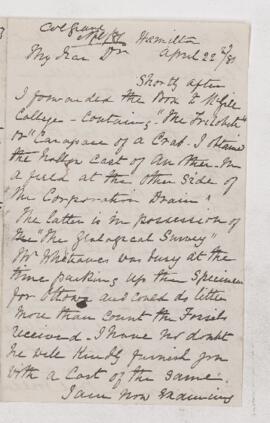 Col Grant
Hamilton
April 22nd/80
My Dear Dr
Shortly after
I forwarded the Box to McGill
College - Containing "The Trilobite"
or "Carapace of a Crab" I obtained
the Hollow Cast of Another - in
a field at the other side of
"The Corporation Drain".
The latter is in possession of
the "The Geological Survey"
Mr Whiteaves was busy at the
time packing up the Specimens
for Ottawa and could do little
more than Count the Fossils
received. I have no doubt
he will Kindly furnish you
with a Cast of the same.
I am now Examining